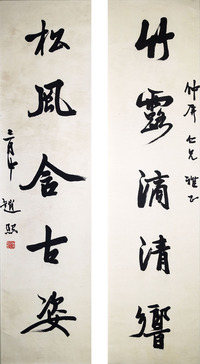 仲屏仁兄雅正
竹露滴清響
松風含古姿
趙熙